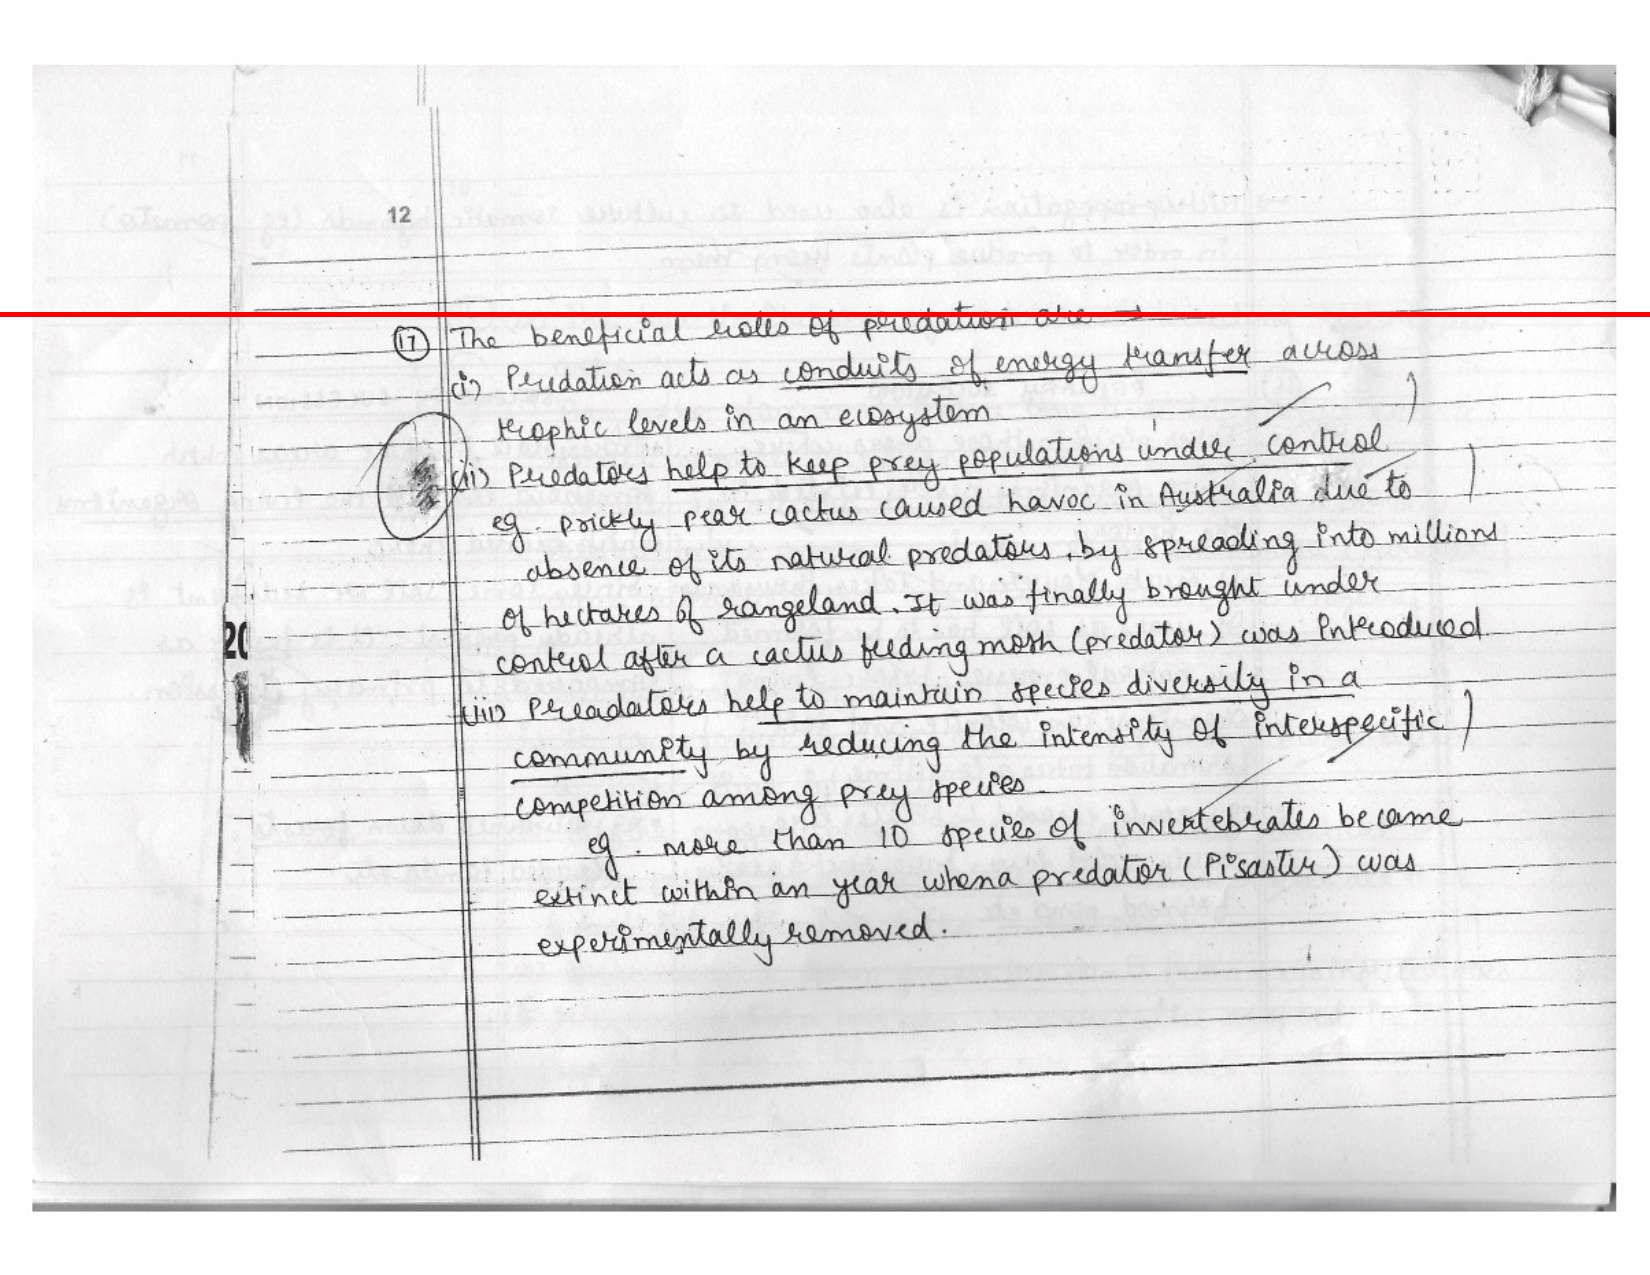 12
17 The beneficial roles of predation are →
(i) Predation acts as conduits of energy transfer across
trophic levels in an ecosystem
(ii) Predators help to keep prey populations under control
eg. prickly pear cactus caused havoc in Australia due to
absence of its natural predators, by spreading into millions
of hectares of rangeland. It was finally brought under
control after a cactus feeding moth (predator) was introduced
(iii) Preadators help to maintain species diversity in a
community by reducing the intensity of interspecific
competition among prey species.
eg. more than 10 species of invertebrates became
extinct within an year when a predator (Pisaster) was
experimentally removed.
20